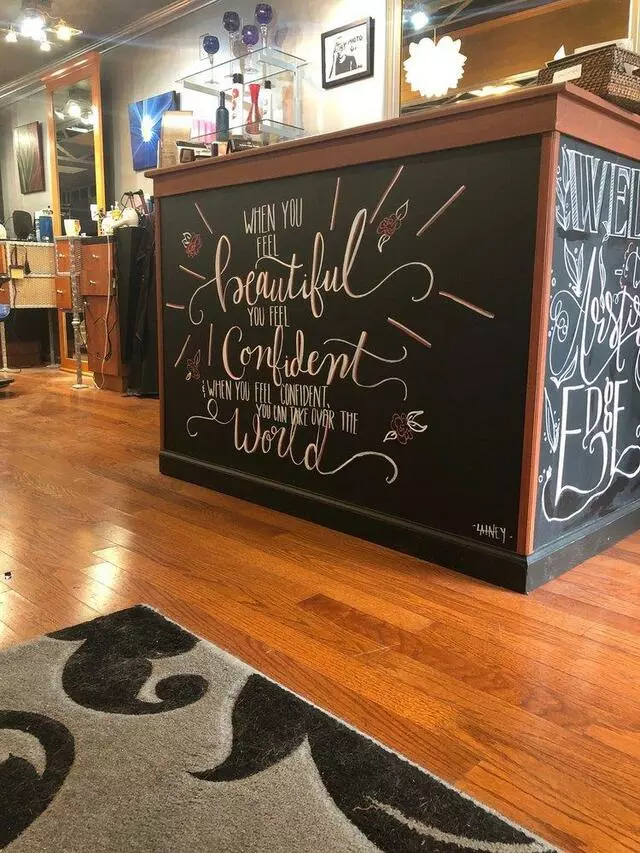 WHEN YOU
FEEL
beautiful
YOU FEEL
Confident
& WHEN YOU FEEL CONFIDENT,
YOU CAN TAKE OVER THE
World
-LAINEY-
WEL
EDGE